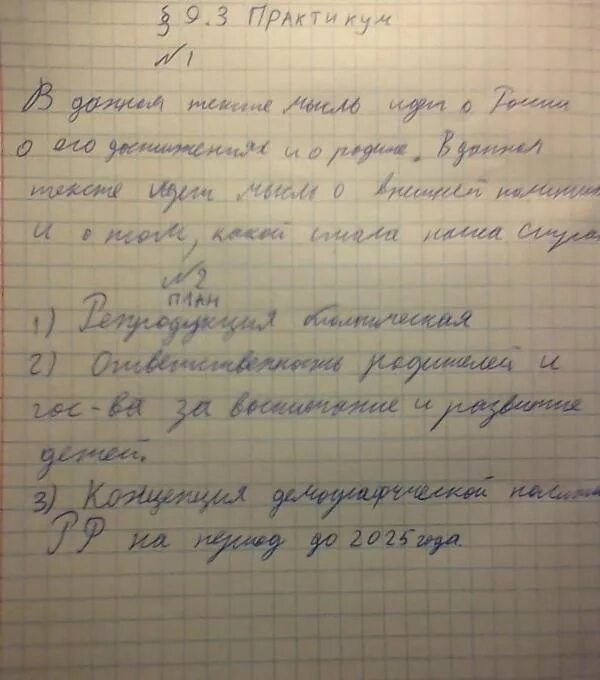 § 9.3 Практикум
№1
В данном тексте мысль идёт о России
о его достижениях и о родине. В данном
тексте идет мысль о внешней политик
и о том, какой стала наша стра
№2
ПЛАН
1) Репродукция биологическая
2) Ответственность родителей и
гос-ва за воспитание и развитие
детей.
3) Концепция демографической полити
РФ на период до 2025 года.